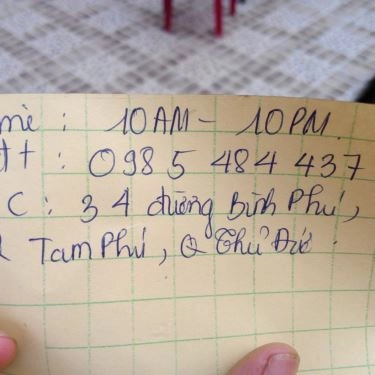 me : 10AM - 10PM.
đt : 0985 484 437
C : 34 đường Bình Phú,
Tam Phú, Q Thủ Đức.